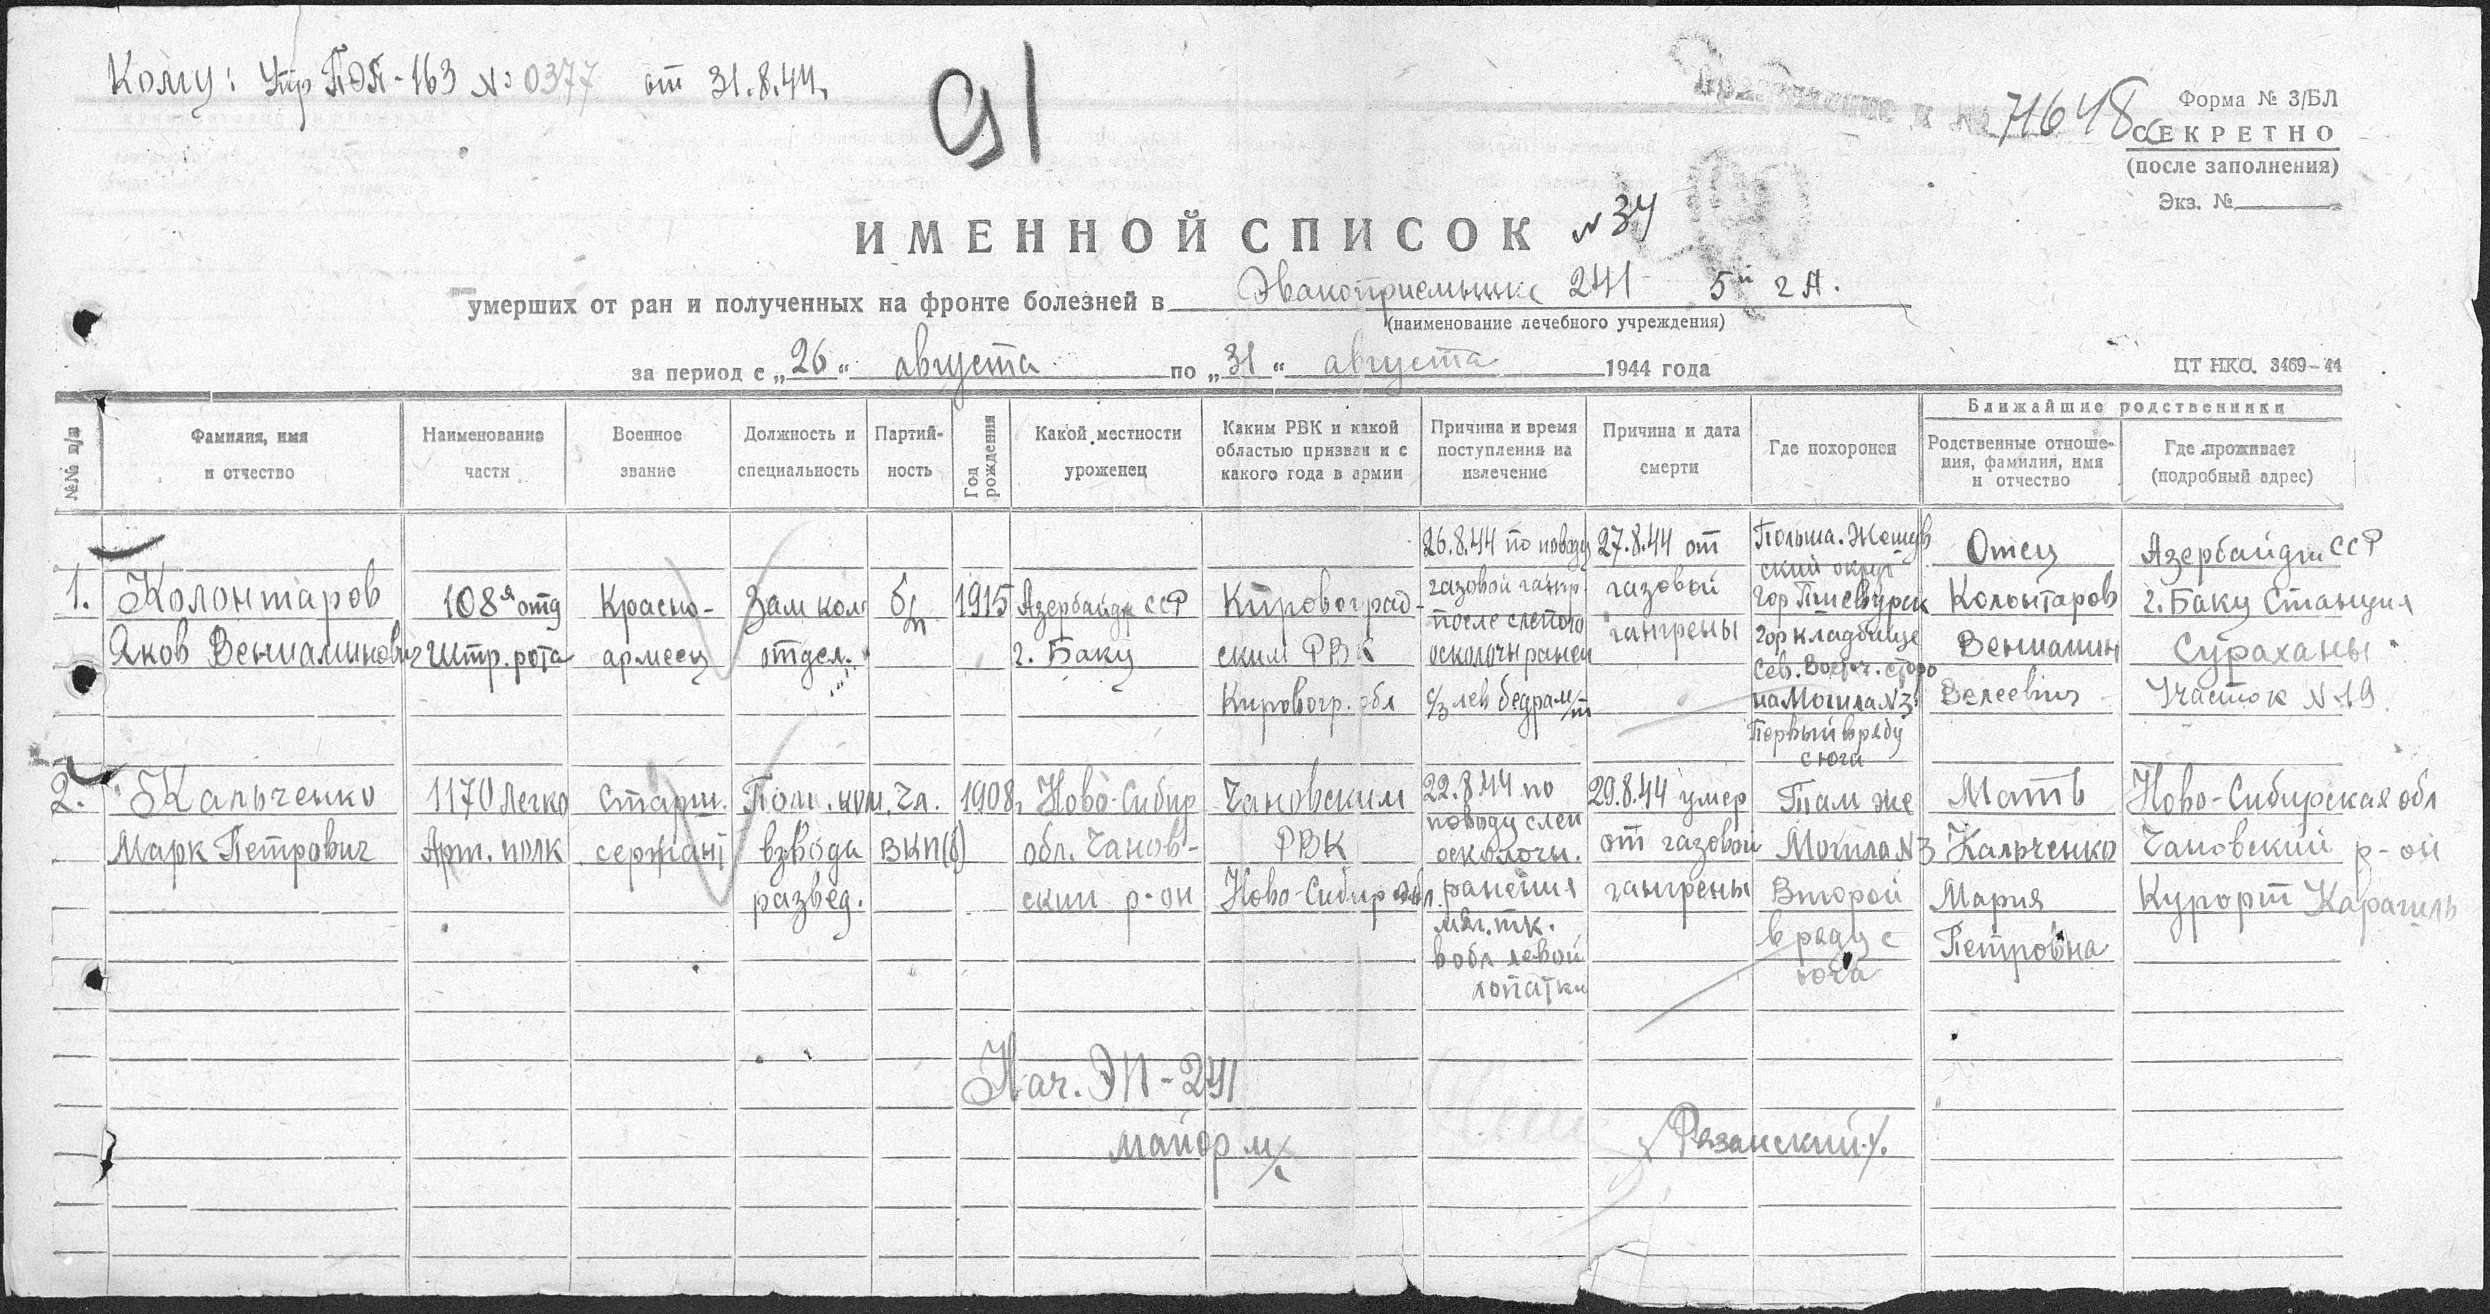 Кому: Упр ПЭП-163 № 0377 от 31.8.44.
91
71648с
Форма № 3/БЛ
СЕКРЕТНО
(после заполнения)
Экз. №
ИМЕННОЙ СПИСОК № 34
умерших от ран и полученных на фронте болезней в Эвакоприемнике 241 5й г А.
(наименование лечебного учреждения)
за период с „26“ августа по „31“ августа 1944 года
ЦТ НКО. 3469-44
№№ п/п
Фамилия, имя
и отчество
Наименование
части
Военное
звание
Должность и
специальность
Партий-
ность
Год
рождения
Какой местности
уроженец
Каким РВК и какой
областью призван и с
какого года в армии
Причина и время
поступления на
излечение
Причина и дата
смерти
Где похоронен
Ближайшие родственники
Родственные отноше-
ния, фамилия, имя
и отчество
Где проживает
(подробный адрес)
1.
Колонтаров
Яков Вениаминович
108я отд
Штр. рота
Красно-
армеец
Зам ком
отдел.
б/п
1915
Азербайдж ССР
г. Баку
Кировоград-
ским РВК
Кировогр. обл
26.8.44 по поводу
газовой гангр.
после слепого
осколочн ранен
с/з лев бедра м/т
27.8.44 от
газовой
гангрены
Польша. Жешув
ский округ
гор
Гор кладбище
Сев. Вост. сторо
на Могила N3
Первый в ряду
с юга
Отец
Колонтаров
Вениамин
Азербайдж ССР
г. Баку Станция
Сураханы
Участок N 19
2.
Кальченко
Марк Петрович
1170 Легко
Арт. полк
Старш.
сержант
Пом. ком.
взвода
развед.
Чл.
ВКП(б)
1908
Ново-Сибир
обл. Чанов-
ский р-он
Чановским
РВК
Ново-Сибир обл.
22.8.44 по
поводу слеп
осколочн.
ранения
мяг. тк.
в обл левой
лопатки
29.8.44 умер
от газовой
гангрены
Там же
Могила N3
Второй
в ряду с
юга
Мать
Кальченко
Мария
Петровна
Ново-Сибирская обл
Чановский р-он
Курорт Карачиль
Нач. ЭП-241
майор м/с
/Рязанский/.